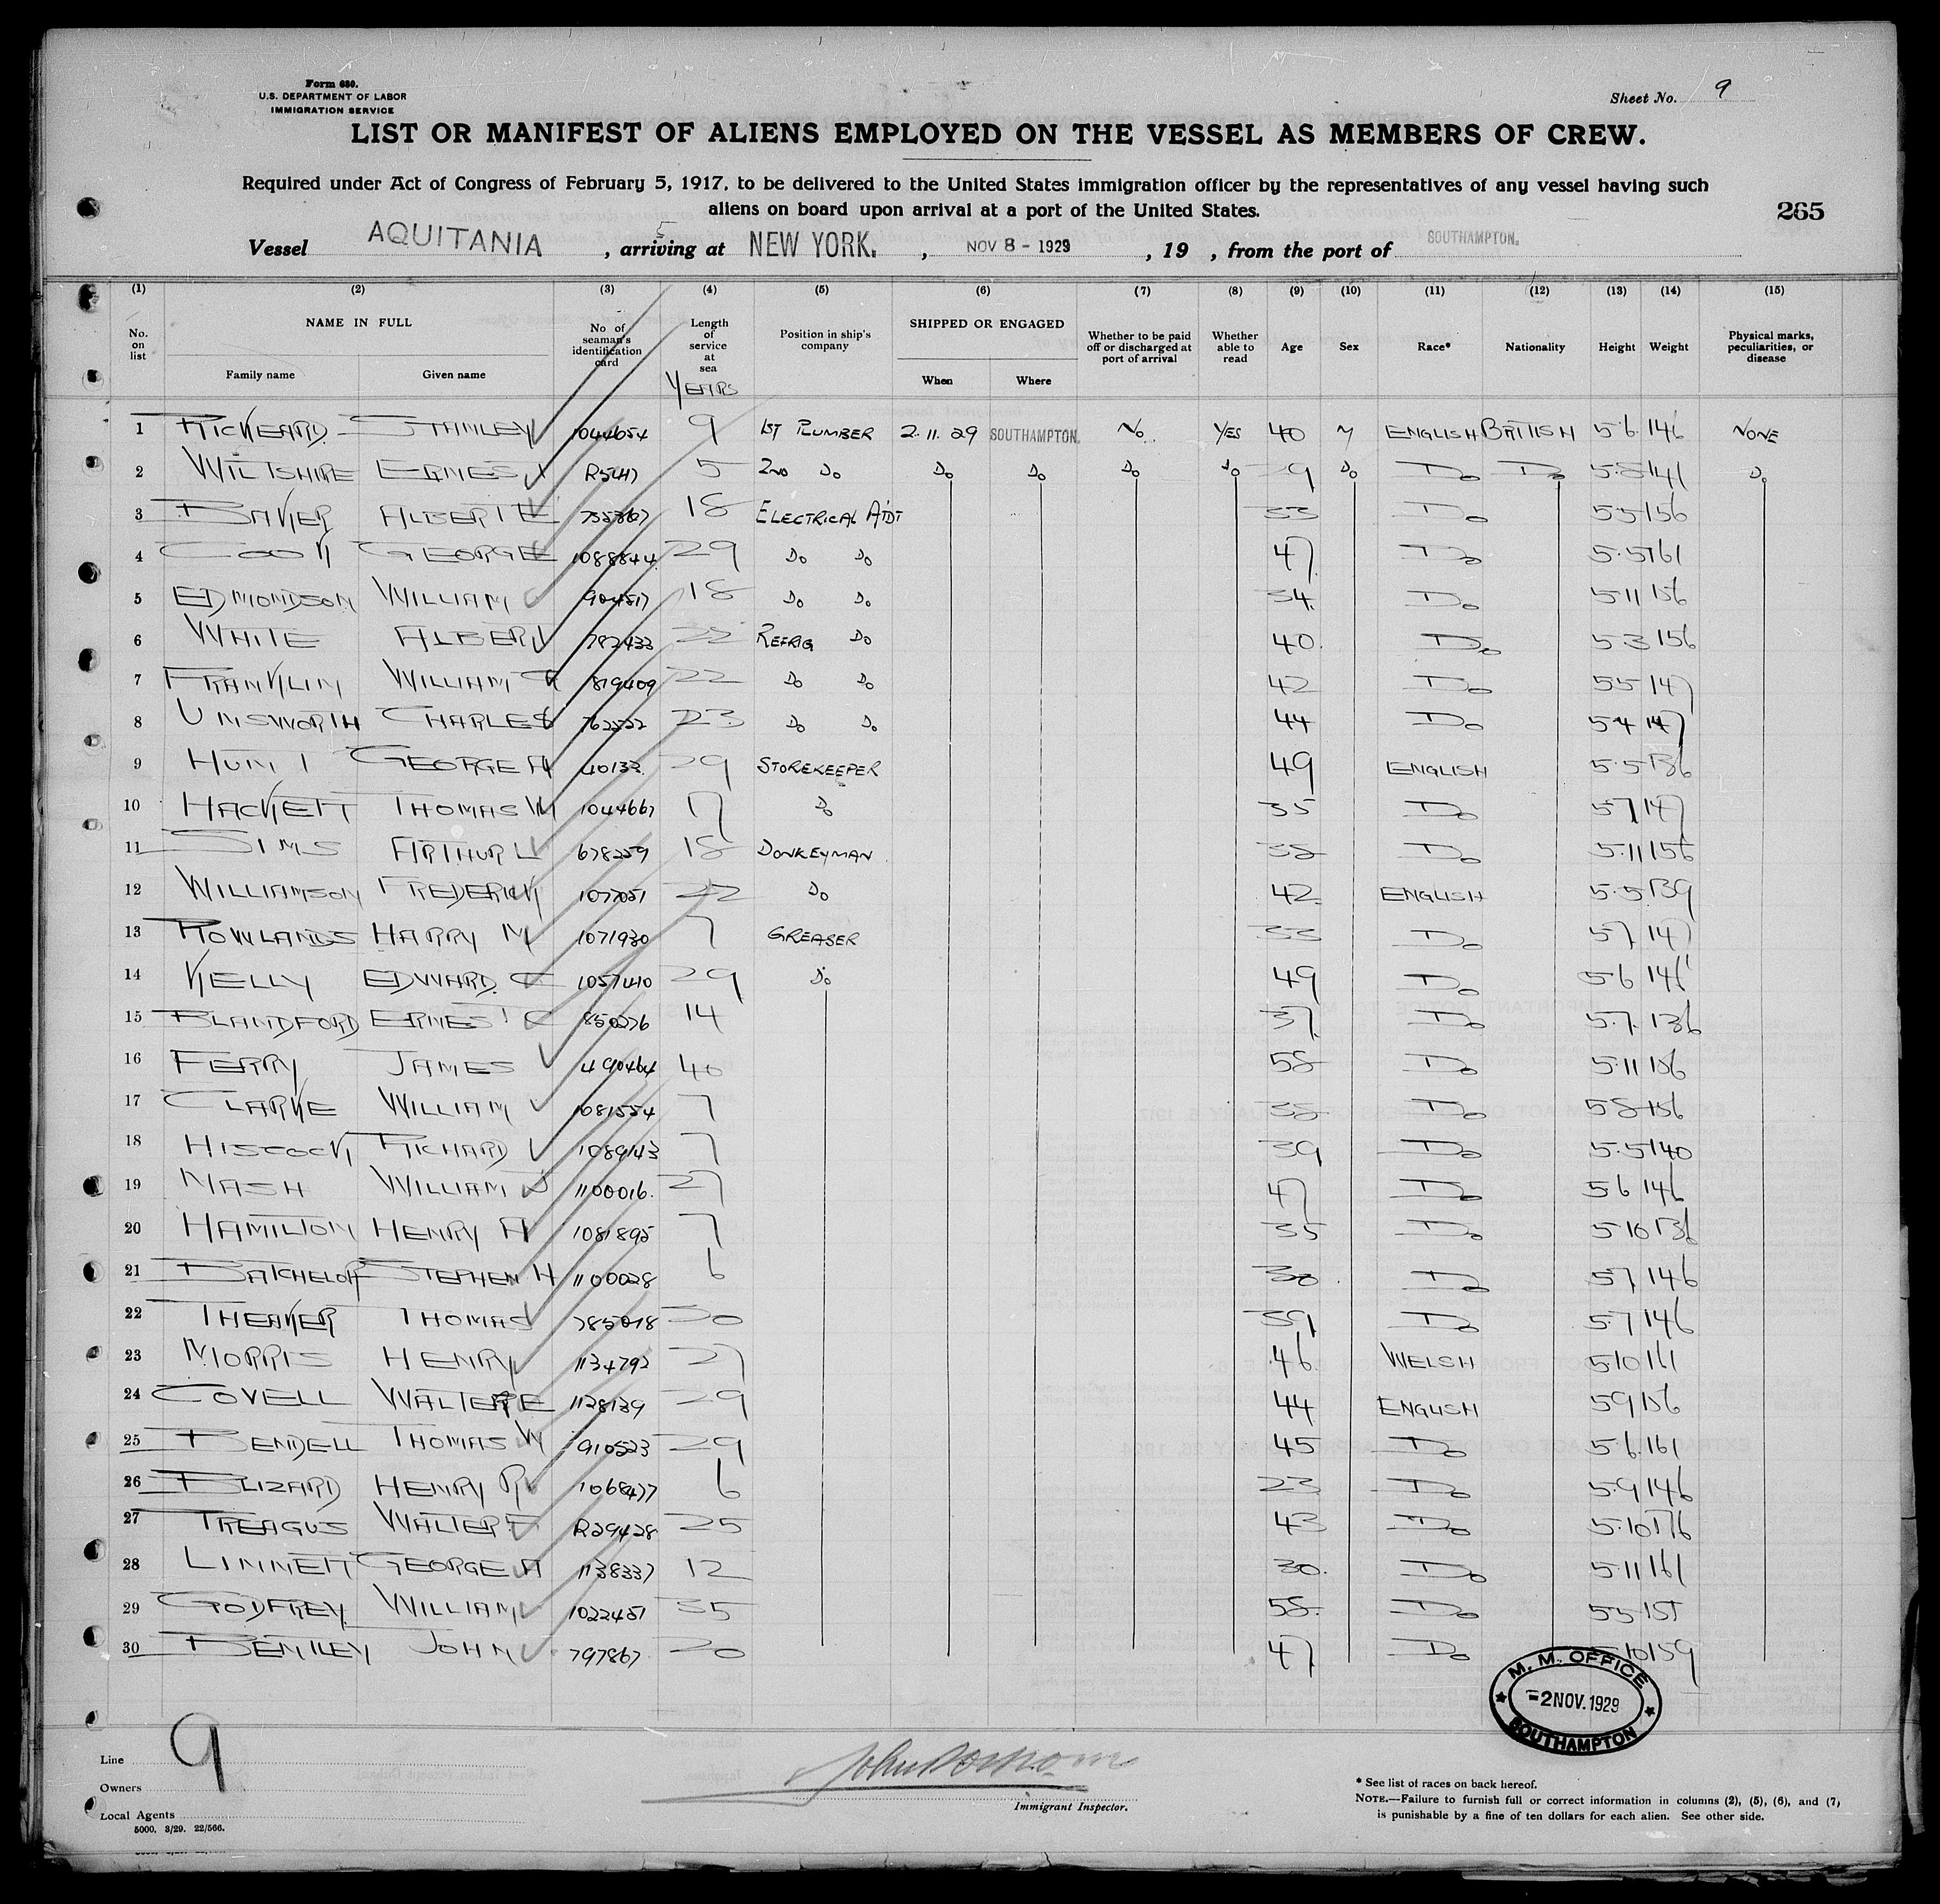 Form 680.
U.S. DEPARTMENT OF LABOR
IMMIGRATION SERVICE
Sheet No. 9
LIST OR MANIFEST OF ALIENS EMPLOYED ON THE VESSEL AS MEMBERS OF CREW.
Required under Act of Congress of February 5, 1917, to be delivered to the United States immigration officer by the representatives of any vessel having such
aliens on board upon arrival at a port of the United States.
265
Vessel AQUITANIA, arriving at NEW YORK., NOV 8 - 1929, 19 , from the port of SOUTHAMPTON.
(1) (2) (3) (4) (5) (6) (7) (8) (9) (10) (11) (12) (13) (14) (15)
No. on list NAME IN FULL Family name Given name No of seaman's identification card Length of service at sea YEARS Position in ship's company SHIPPED OR ENGAGED When Where Whether to be paid off or discharged at port of arrival Whether able to read Age Sex Race* Nationality Height Weight Physical marks, peculiarities, or disease
1 RICKEARD STANLEY 1044654 9 1ST PLUMBER 2.11.29 SOUTHAMPTON. No YES 40 M ENGLISH BRITISH 5.6 146 NONE
2 WILTSHIRE ERNEST 5 2ND Do Do Do Do Do Do Do Do 141 Do
3 BAKER ALBERT E 18 ELECTRICAL ATDT 33 Do 5.5 156
4 COOK GEORGE 1088844 29 Do Do 47 Do 5.5 161
5 EDMONDSON WILLIAM 904817 18 Do Do 34 Do 5.11 156
6 WHITE ALBERT 782433 REFRIG Do 40 Do 5.3 156
7 FRANKLIN WILLIAM 819409 22 Do Do 42 Do 5.5 147
8 UNSWORTH CHARLES 762522 23 Do Do 44 Do 5.4 147
9 HUNT GEORGE A 40132 29 STOREKEEPER 49 ENGLISH 5.5 136
10 HACKETT THOMAS W 1044667 17 Do 35 Do 5.7 147
11 SIMS ARTHUR L 678259 18 DONKEYMAN 38 Do 5.11 156
12 WILLIAMSON FREDERICK 1077051 22 Do 42 ENGLISH 5.5 139
13 ROWLANDS HARRY M 1071930 7 GREASER 33 Do 5.7 147
14 KELLY EDWARD 1057410 29 Do 49 Do 5.6 146
15 BLANDFORD ERNEST 850276 14 37 Do 5.7 136
16 FERRY JAMES 490464 40 58 Do 5.11 156
17 CLARKE WILLIAM 1081554 7 38 Do 5.8 156
18 HISCOCK RICHARD 1089143 7 39 Do 5.5 140
19 NASH WILLIAM J 1100016. 27 47 Do 5.6 146
20 HAMILTON HENRY A 1081895 7 35 Do 5.10 136
21 BATCHELOR STEPHEN H 1100028 6 30 Do 5.7 146
22 THEAKER THOMAS 785018 20 39 Do 5.7 146
23 MORRIS HENRY 1134792 27 46 WELSH 5.10 161
24 COVELL WALTER E 1128139 29 44 ENGLISH 5.9 156
25 BENDELL THOMAS W 910523 29 45 Do 5.6 161
26 BLIZARD HENRY R 1068477 6 23 Do 5.9 146
27 TREAGUS WALTER R29428 25 43 Do 5.10 176
28 LINNETT GEORGE A 1138337 12 30 Do 5.11 161
29 GODFREY WILLIAM 1022451 35 58 Do 5.5 151
30 BENTLEY JOHN 797867 20 47 Do 5.10 159
M. M. OFFICE
2 NOV. 1929
SOUTHAMPTON
Line 9
Owners
Local Agents
5000. 3/29. 22/566.
Immigrant Inspector.
* See list of races on back hereof.
NOTE.—Failure to furnish full or correct information in columns (2), (5), (6), and (7)
is punishable by a fine of ten dollars for each alien. See other side.